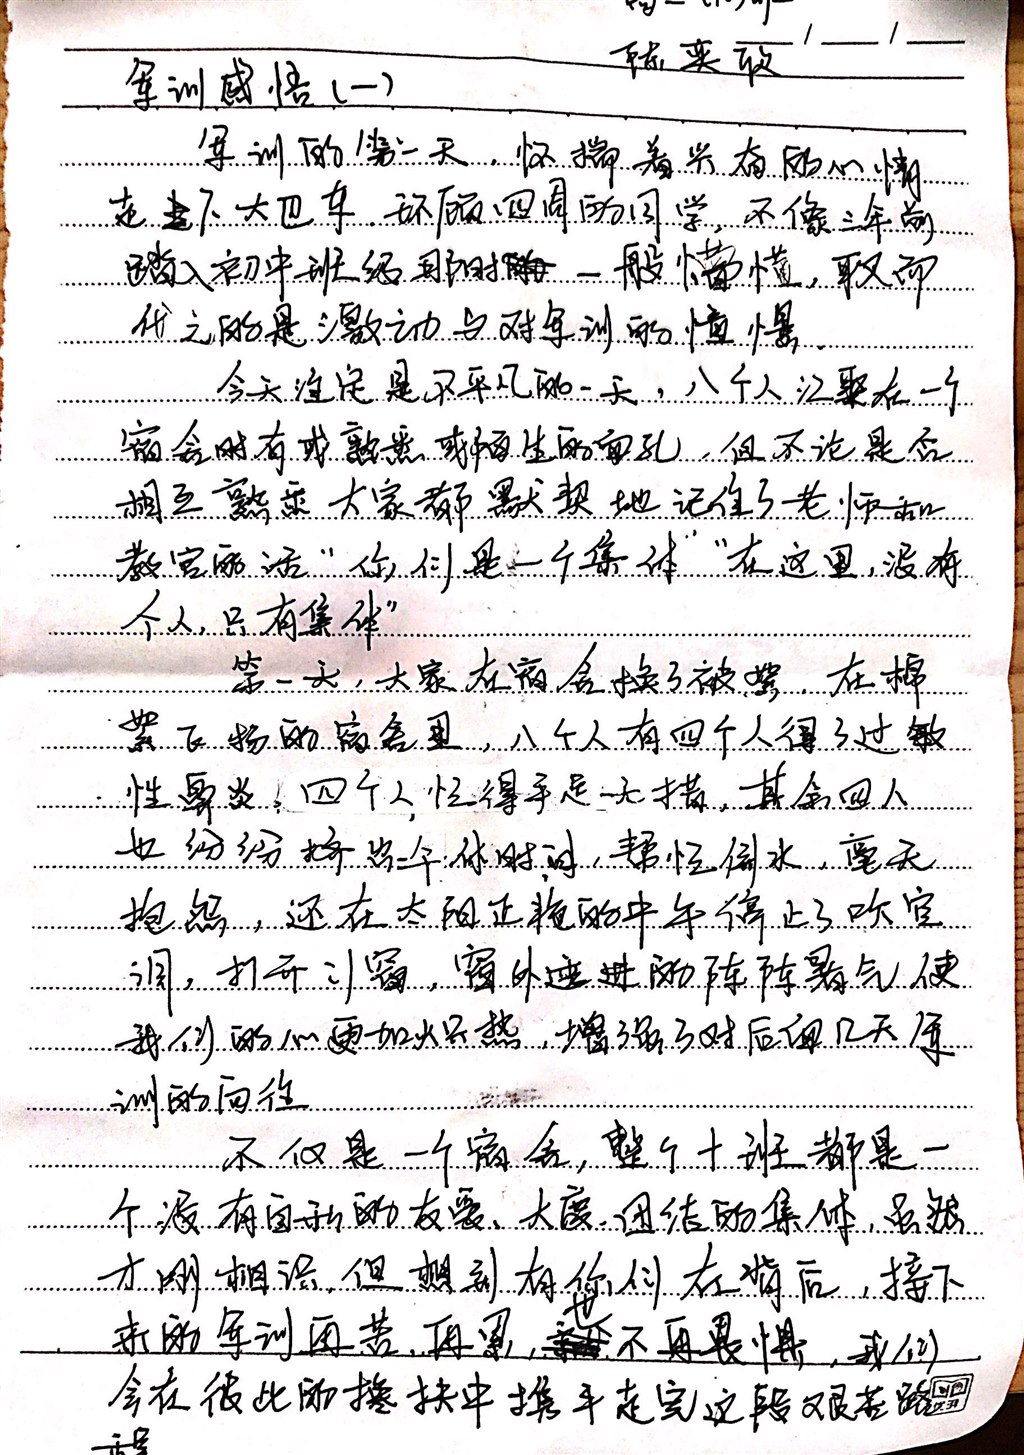 陈奕敢
军训感悟(一)
军训的第一天，怀揣着兴奋的心情
走下大巴车，环顾四周的同学，不像三年前
踏入初中班级那时一般懵懂，取而
代之的是激动与对军训的憧憬。
今天注定是不平凡的一天，八个人汇聚在一个
宿舍时有或熟悉或陌生的面孔，但不论是否
相互熟悉大家都默契地记住了老师和
教官的话“你们是一个集体”“在这里，没有
个人，只有集体”
第一天，大家在宿舍换了被絮，在棉
絮飞扬的宿舍里，八个人有四个人得了过敏
性鼻炎，四个人忙得手足无措，其余四人
也纷纷挤出午休时间，帮忙倒水，毫无
抱怨，还在太阳正艳的中午停止了吹空
调，打开门窗，窗外迸进的阵阵暑气使
我们的心更加火热，增强了对后面几天军
训的向往
不仅是一个宿舍，整个十班都是一
个没有自私的友爱、大度、团结的集体，虽然
才刚相识，但想到有你们在背后，接下
来的军训再苦、再累，也不再畏惧，我们
会在彼此的搀扶中携手走完这段艰苦路
程